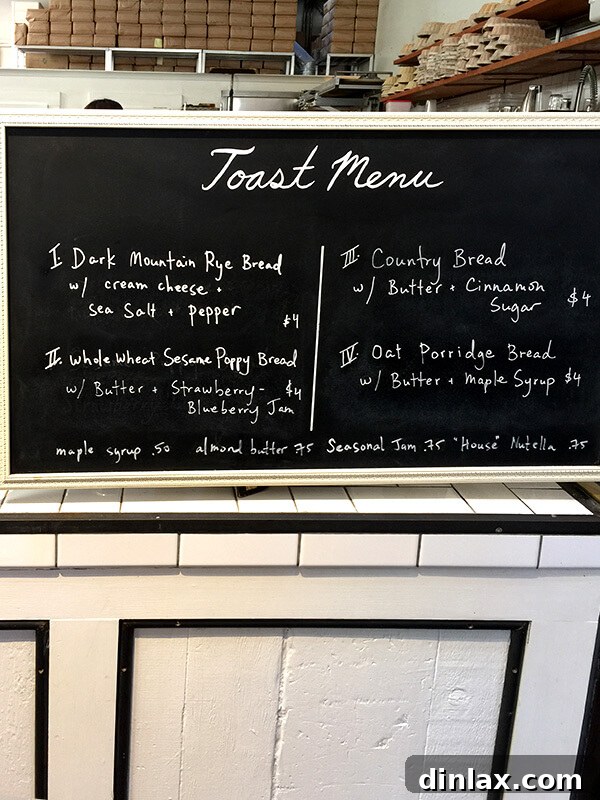 Toast Menu
I. Dark Mountain Rye Bread
w/ cream cheese +
sea Salt + pepper
$4
II. Whole Wheat Sesame Poppy Bread
w/ Butter + Strawberry- $4
Blueberry Jam
III. Country Bread
w/ Butter + Cinnamon
Sugar $4
IV. Oat Porridge Bread
w/ Butter + Maple Syrup $4
maple syrup .50 almond butter .75 Seasonal Jam .75 "House" Nutella .75
dinlax.com